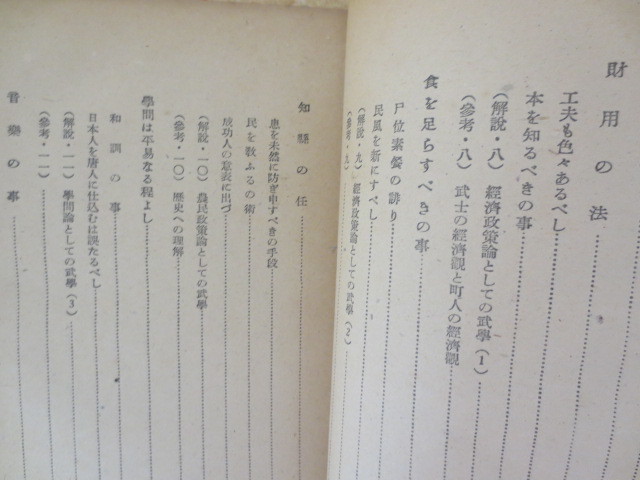 財用の法
工夫も色々あるべし
本を知るべきの事
(解說・八) 經濟政策論としての武學(1)
(參考・八) 武士の經濟觀と町人の經濟觀
食を足らすべきの事
尸位素餐の誹り
民風を新にすべし
(解說・九) 經濟政策論としての武學(2)
(參考・九)
知縣の任
患を未然に防ぎ申すべきの手段
民を敎ふるの術
成功人の意表に出づ
(解說・一〇) 農民政策論としての武學
(參考・一〇) 歷史への理解
學問は平易なる程よし
和訓の事
日本人を唐人に仕込むは誤たるべし
(解說・一一) 學問論としての武學(3)
(參考・一一)
音樂の事